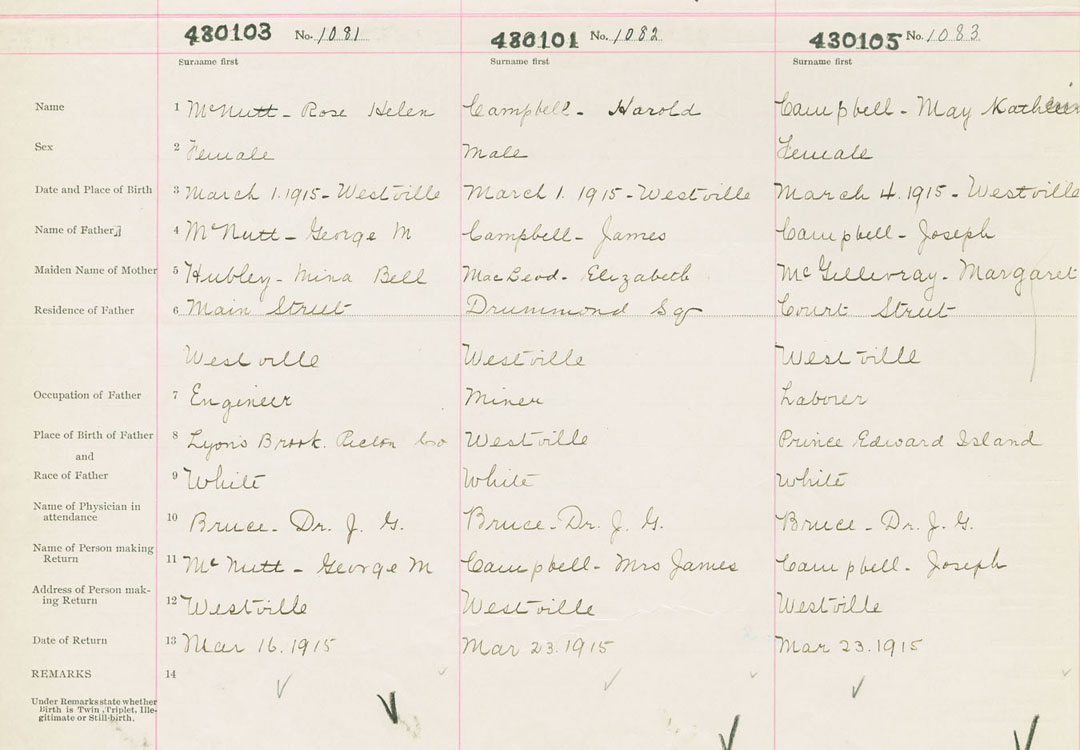 430103 No. 1081 430101 No. 1082 430105 No. 1083
Surname first Surname first Surname first
Name 1 McNutt - Rose Helen Campbell - Harold Campbell - May
Sex 2 Female Male Female
Date and Place of Birth 3 March 1. 1915 - Westville March 1. 1915 - Westville March 4. 1915 - Westville
Name of Father 4 McNutt - George M Campbell - James Campbell - Joseph
Maiden Name of Mother 5 Hubley - Mina Bell MacLeod - Elizabeth McGillivray - Margaret
Residence of Father 6 Main Street Drummond Sq Court Street
Westville Westville Westville
Occupation of Father 7 Engineer Miner Laborer
Place of Birth of Father 8 Lyons Brook. Pictou Co Westville Prince Edward Island
and
Race of Father 9 White White White
Name of Physician in
attendance 10 Bruce - Dr. J. G. Bruce - Dr. J. G. Bruce - Dr. J. G.
Name of Person making
Return 11 McNutt - George M Campbell - Mrs James Campbell - Joseph
Address of Person mak-
ing Return 12 Westville Westville Westville
Date of Return 13 Mar 16. 1915 Mar 23. 1915 Mar 23. 1915
REMARKS 14
Under Remarks state whether
Birth is Twin, Triplet, Ille-
gitimate or Still-birth.